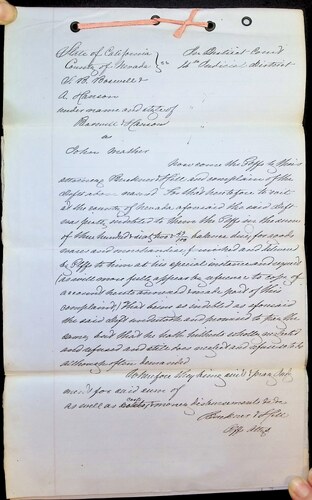 State of California } In District Court
County of Nevada } ss 14th Judicial District
A. B. &
A Hanson
under name and style of
& Hanson
vs
John Mather
Now come the Plffs by their
attorney Buckner & Hill and complain of the
deft above named For that heretofore to wit
at the county of Nevada aforesaid the said deft
was justly indebted to them the Plffs in the sum
of three hundred sixty four balance due for goods
wares and merchandise furnished and delivered
by Plffs to him at his special instance and request
(as will more fully appear by reference to copy of
account hereto annexed & made part of this
complaint) That being so indebted as aforesaid
the said deft undertook and promised to pay the
same, but that he hath hitherto wholly neglected
and refused and still doth neglect and refuse so to do
although often demanded
Wherefore they bring suit & pray judg
ment for said sum of
as well as costs money disbursements &c
Buckner & Hill
Plffs Attys